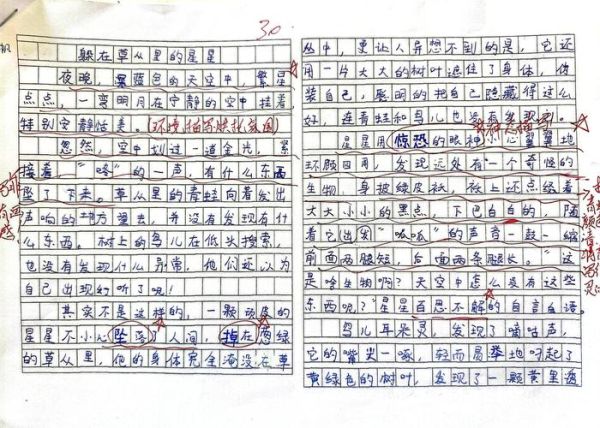 30
躲在草丛里的星星
夜晚，墨蓝色的天空中，繁星
点点，一弯明月在宁静的空中挂着，
特别安静恬美。(环境描写烘托氛围)
忽然，空中划过一道金光，紧
接着，“咚”的一声，有什么东西
坠了下来。草丛里的青蛙向着发出
声响的地方望去，并没有发现有什
么东西。树上的鸟儿在低头搜索，
也没有发现什么异常，他们还以为
自己出现幻听了呢！
其实不是这样的，一颗顽皮的
星星不小心坠落了人间，掉在葱绿
的草丛里，他的身体完全淹没在草
丛中，更让人异想不到的是，它还
用一片大大的树叶遮住了身体，伪
装自己，聪明的把自己隐藏得这么
好，连青蛙和鸟儿也没有发现。
星星用惊恐的眼神小心翼翼地
环顾四周，发现远处有一个奇怪的
生物，身披绿皮袄，袄上还点缀着
大大小小的黑点，下巴白白的，随
着它出发“呱呱”的声音一鼓一缩
前面两腿短，后面两条腿长。“这
是啥生物啊？天空中怎么没有这些
东西呢？”星星百思不解的自言自语。
鸟儿耳朵灵，发现了嘀咕声，
它的嘴尖一啄，轻而易举地叼起了
黄绿色的树叶，发现了一颗黄里透